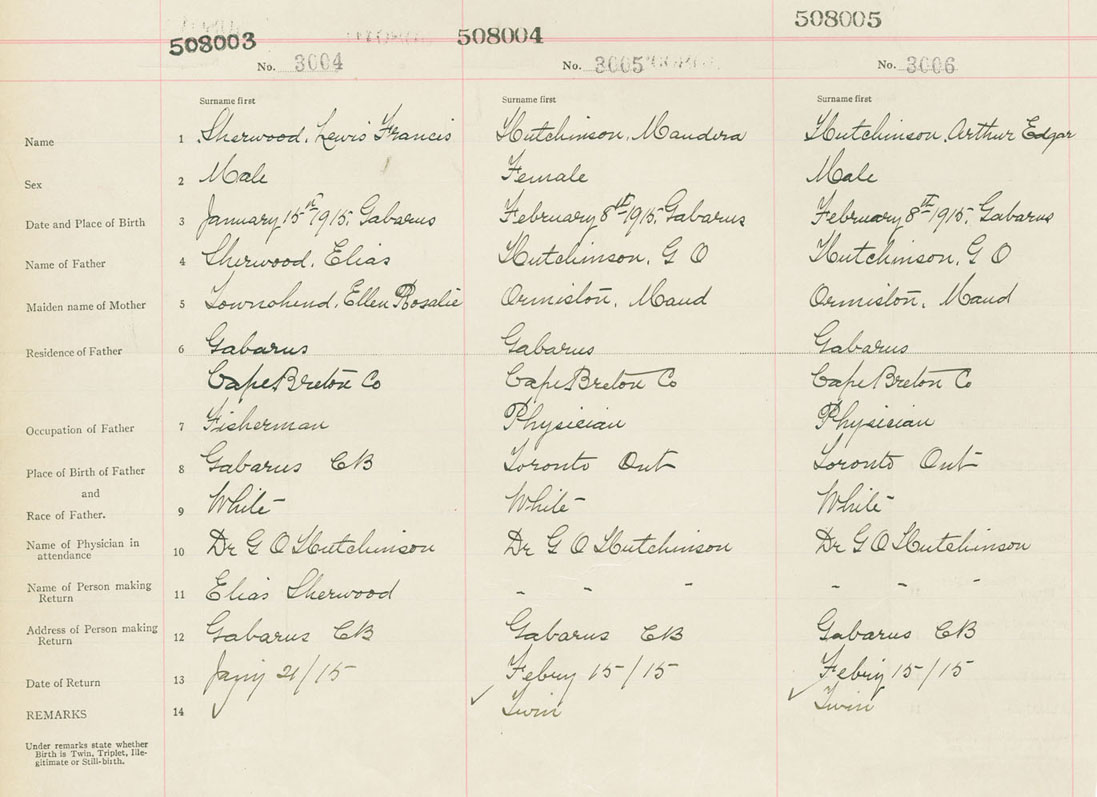 508003 508004 508005
No. 3004 No. 3005 No. 3006
Surname first Surname first Surname first
Name 1 Sherwood, Lewis Francis Hutchinson, Maudora Hutchinson, Arthur Edgar
Sex 2 Male Female Male
Date and Place of Birth 3 January 15th 1915, Gabarus February 8th 1915, Gabarus February 8th 1915, Gabarus
Name of Father 4 Sherwood, Elias Hutchinson, G O Hutchinson, G O
Maiden name of Mother 5 Townshend, Ellen Rosalie Ormiston, Maud Ormiston, Maud
Residence of Father 6 Gabarus Gabarus Gabarus
Cape Breton Co Cape Breton Co Cape Breton Co
Occupation of Father 7 Fisherman Physician Physician
Place of Birth of Father 8 Gabarus CB Toronto Ont Toronto Ont
and
Race of Father. 9 White White White
Name of Physician in
attendance 10 Dr G O Hutchinson Dr G O Hutchinson Dr G O Hutchinson
Name of Person making
Return 11 Elias Sherwood - - - - - -
Address of Person making
Return 12 Gabarus CB Gabarus CB Gabarus CB
Date of Return 13 Jany 21/15 Febry 15/15 Febry 15/15
REMARKS 14 ✓ ✓ Twin ✓ Twin
Under remarks state whether
Birth is Twin, Triplet, Ille-
gitimate or Still-birth.